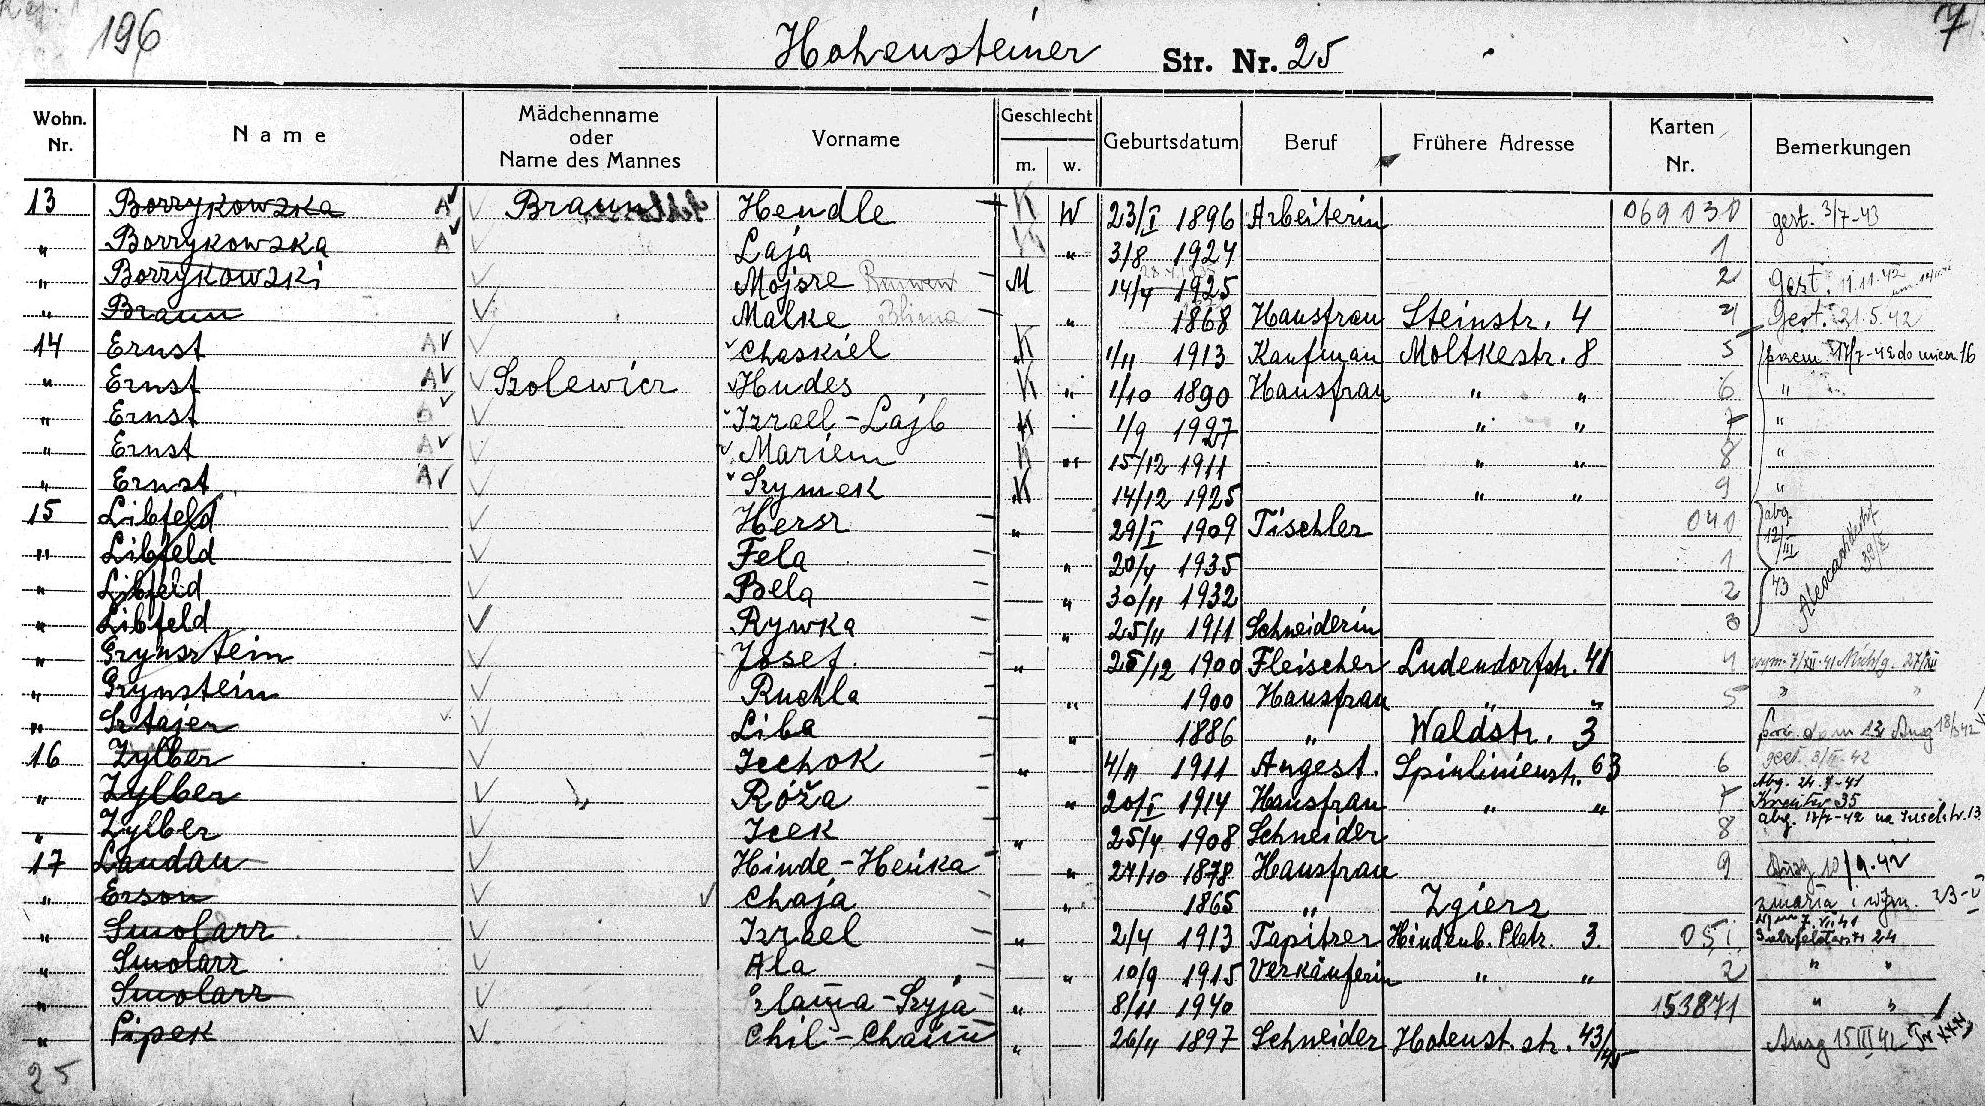 196
7
Hohensteiner Str. Nr. 25
Wohn. Nr. Name Mädchenname oder Name des Mannes Vorname Geschlecht m. w. Geburtsdatum Beruf Frühere Adresse Karten Nr. Bemerkungen
13 Borzykowska A Braun Hendle K W 23/I 1896 Arbeiterin 069030 gest. 3/7-43
" Borzykowska A Laja " 3/8 1924 1
" Borzykowski Mojsze M 14/4 1925 2 Gest. 11.11.42
" Braun Malke Blima " 1868 Hausfrau Steinstr. 4 4 Gest. 21.5.42
14 Ernst A Chaskiel K 1/11 1913 Kaufman Moltkestr. 8 5
" Ernst A Szolewicz Hudes K " 1/10 1890 Hausfrau " " 6 "
" Ernst Izrael-Lajb K 1/9 1927 " " 7 "
" Ernst A Mariem K " 15/12 1911 " " 8 "
" Ernst A Szymek K 14/12 1925 " " 9 "
15 Libfeld Hersz " 29/I 1909 Tischler 040 abg. 12/III 43
" Libfeld Fela " 20/4 1935 1
" Libfeld Bela " 30/11 1932 2
" Libfeld Rywka " 25/11 1911 Schneiderin 3
" Grynsztein Josef. " 25/12 1900 Fleischer Ludendorfstr. 41 4
" Grynstein Ruchla " 1900 Hausfrau " " 5 " "
" Sztajer Liba " 1886 " Waldstr. 3
16 Zylber Icchok " 4/11 1911 Angest. Spinlinienstr. 63 6
" Zylber " Róża " 20/I 1914 Hausfrau " " 7 Abg. 24.
" Zylber Icek " 25/4 1908 Schneider 8 abg.
17 Landau Hinde-Heńka " 27/10 1878 Hausfrau 9 Ausg 10/9.42
" Erson Chaja " 1865 " Zgierz
" Smolarz Izrael " 2/4 1913 Tapitzer Hindenb. Platz. 3. 051
" Smolarz Ala " 10/9 1915 Verkäuferin " " 2 " "
" Smolarz Szlama-Szyja " 8/11 1940 153871 " "
" Pipek Chil-Chaim " 26/11 1897 Schneider Hohenst. str. 43/45 Ausg 15 III 42
25